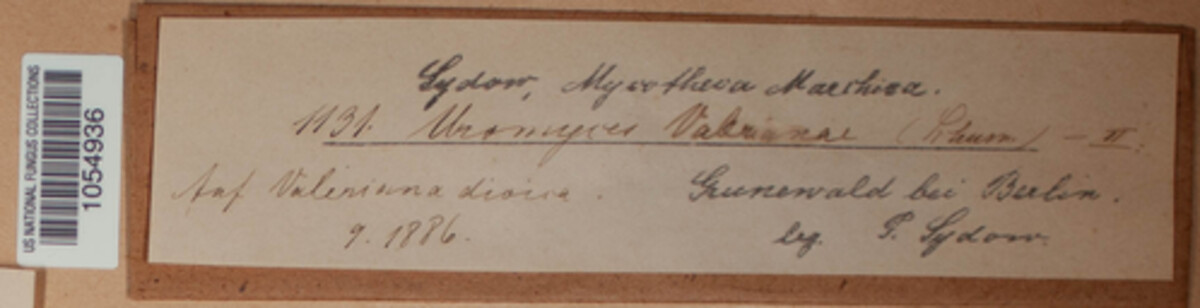 US NATIONAL FUNGUS COLLECTIONS
1054936
Sydow, Mycotheca Marchica.
1131. Uromyces Valerianae (Schum) – II.
Auf Valeriana dioica. Grunewald bei Berlin.
9. 1886. leg. P. Sydow.